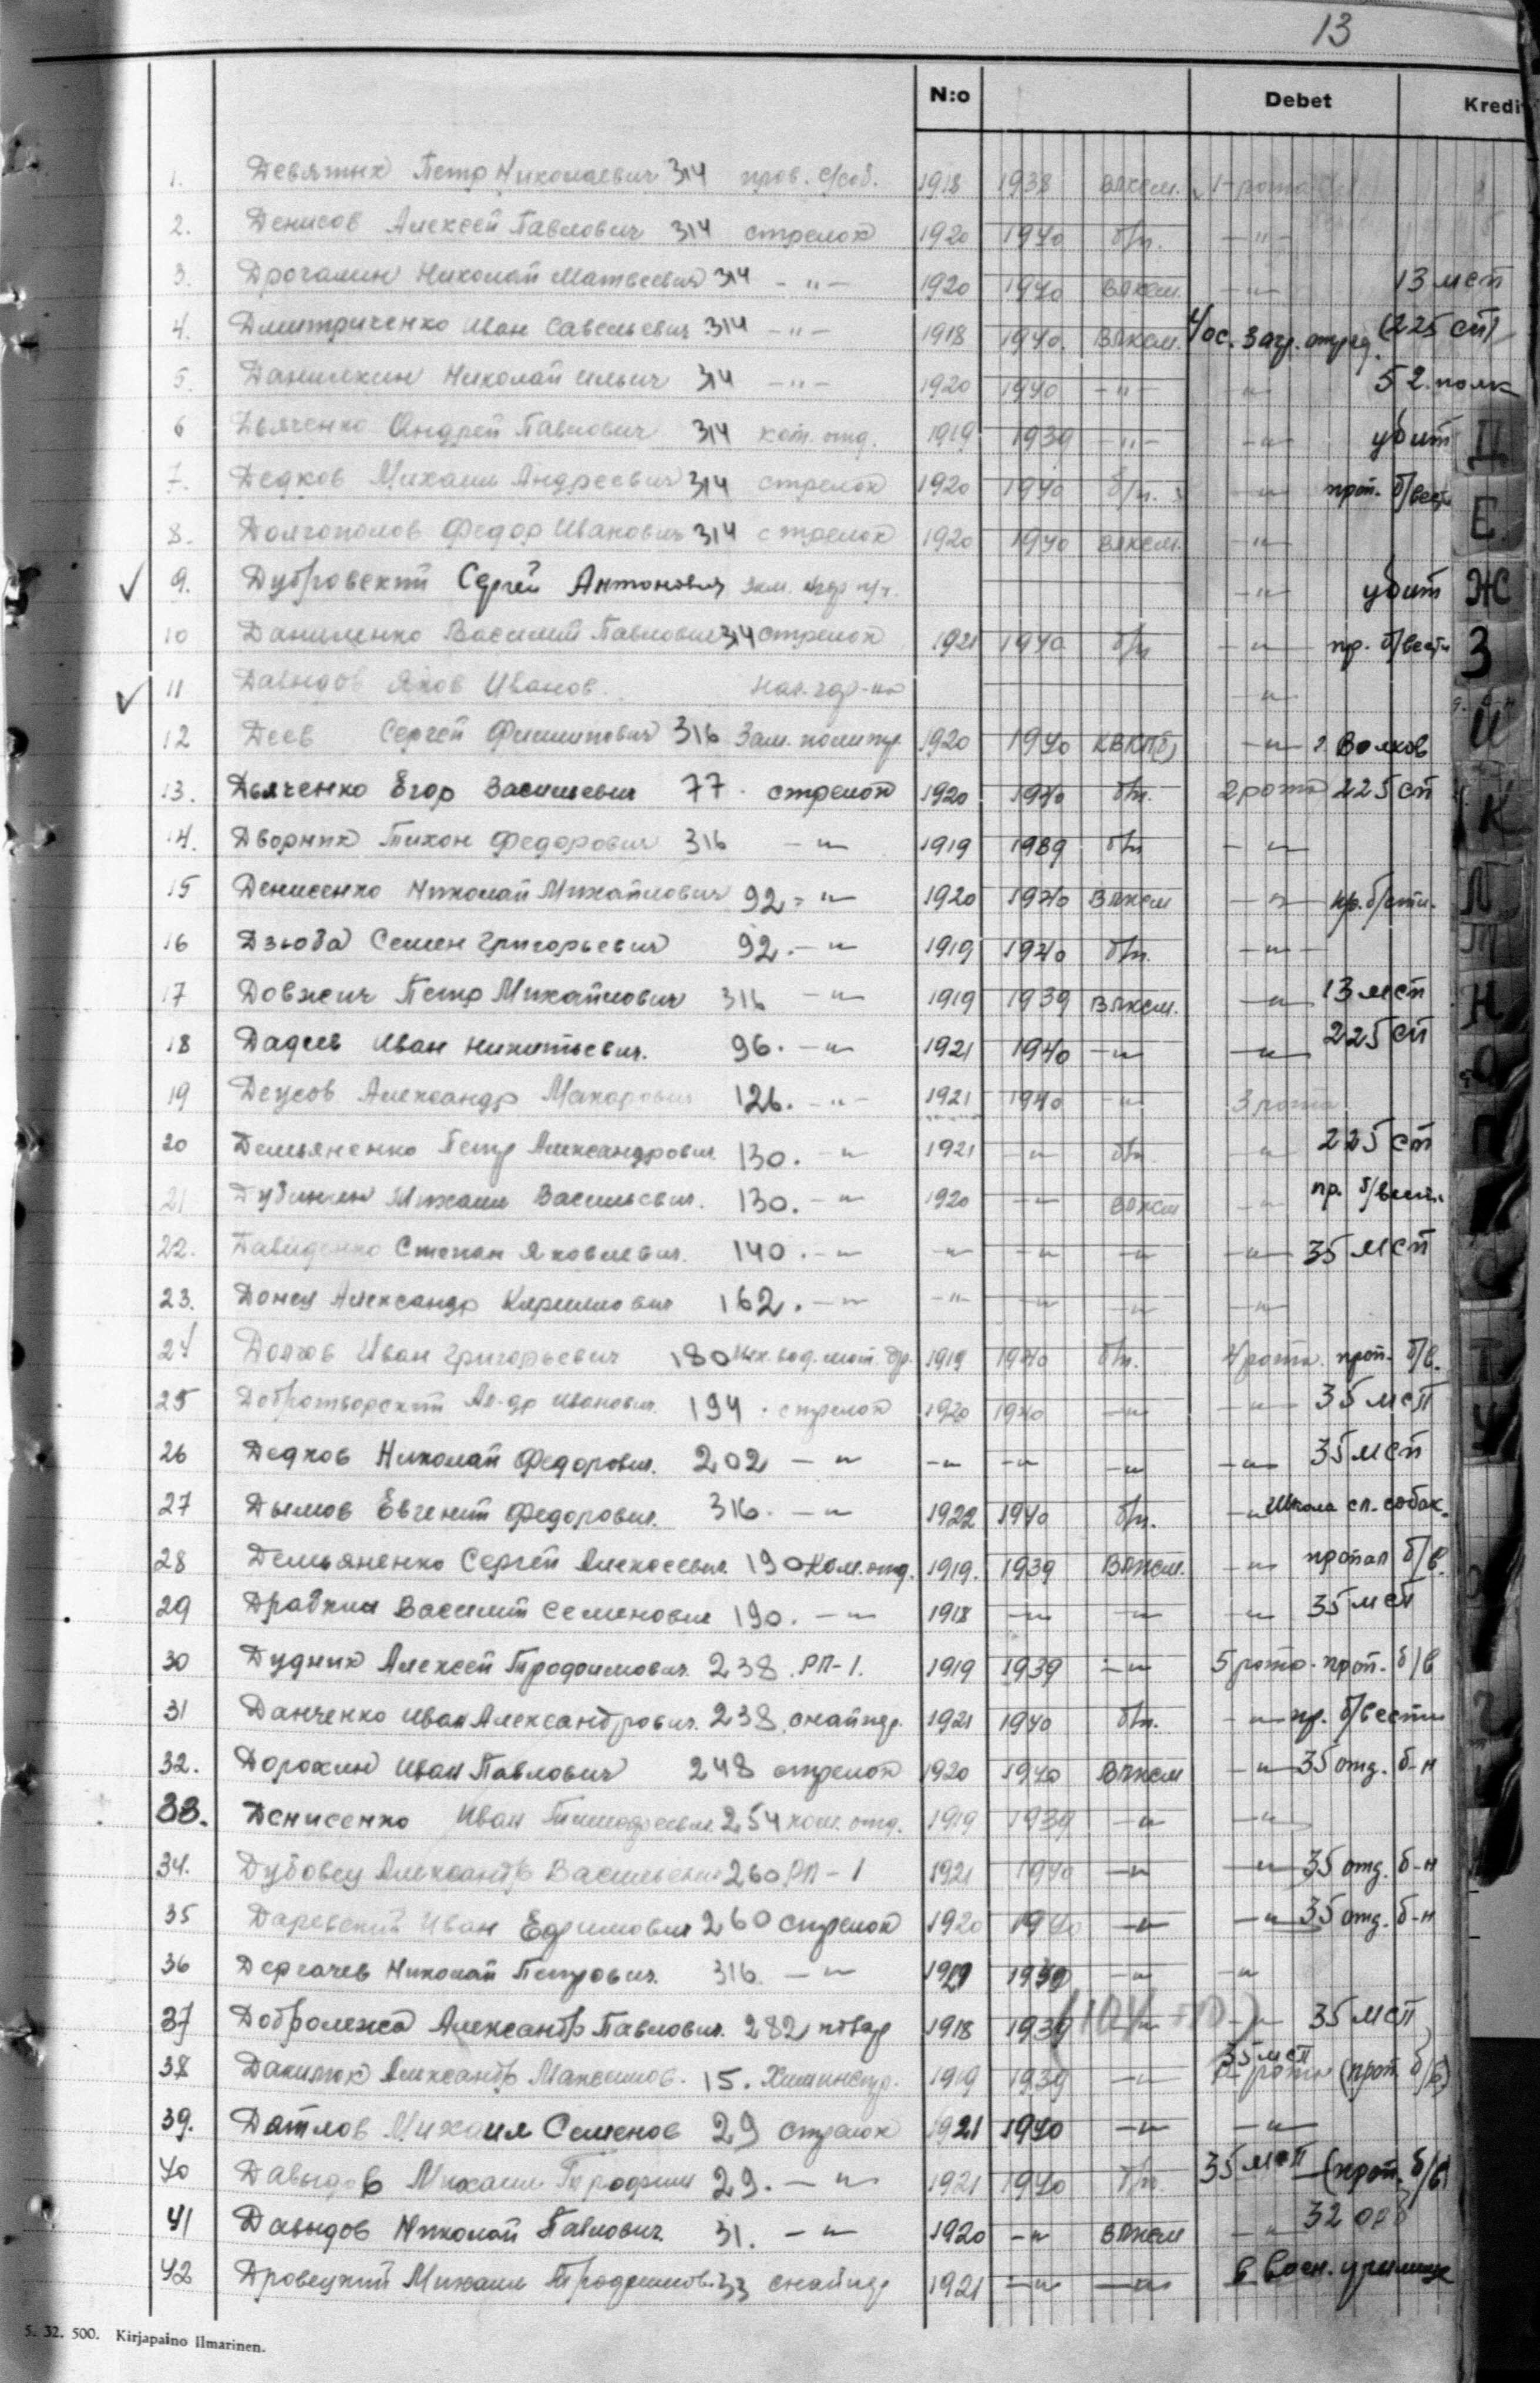 13
N:o Debet Kredi
1. Девятых Петр Николаевич 314 пров. с/соб. 1918 1938 ВЛКСМ. 1-рота
2. Денисов Алексей Павлович 314 стрелок 1920 1940 б/п. -"-
3. Дрогалин Николай Матвеевич 314 -"- 1920 1940 ВЛКСМ. -"- 13 мсп
4. Дмитриченко Иван Савельевич 314 -"- 1918 1940. ВЛКСМ. 4 ос. загр. отряд. (225 сп)
5. Данилкин Николай Ильич 314 -"- 1920 1940 -"- -"- 52. полк
6 Дьяченко Андрей Павлович 314 ком. отд. 1919 1939 -"- -"- убит
7. Дедков Михаил Андреевич 314 стрелок 1920 1940 б/п. -"- проп. б/вест
8. Долгополов Федор Иванович 314 стрелок 1920 1940 ВЛКСМ. -"-
9. Дубровский Сергей Антонович -"- убит
10 Даниленко Василий Павлович 314 стрелок 1921 1940 б/п -"- пр. б/вести
11 Давыдов Яков Иванов. -"-
12 Деев Сергей Филиппович 316 Зам. политр. 1920 1940 КВКП(б) -"- г. Волхов
13. Дьяченко Егор Васильевич 77. стрелок 1920 1940 б/п. 2 рота 225 сп
14. Дворник Тихон Федорович 316 -"- 1919 1939 б/п -"-
15 Денисенко Николай Михайлович 92 -"- 1920 1940 ВЛКСМ -"-
16 Дзюба Семен Григорьевич 92. -"- 1919 1940 б/п. -"-
17 Довжич Петр Михайлович 316 -"- 1919 1939 ВЛКСМ. -"- 13 мсп
18 Дадеев Иван Никитьевич. 96. -"- 1921 1940 -"- -"- 225 сп
19 Деусов Александр Макарович 126. -"- 1921 1940 -"- 3 рота
20 Демьяненко Петр Александрович 130. -"- 1921 -"- б/п. -"- 225 сп
21 Дубинин Михаил Васильевич. 130. -"- 1920 -"- ВЛКСМ -"- пр. б/вести
22. Давиденко Степан Яковлевич. 140. -"- -"- -"- -"- -"- 35 мсп
23. Донец Александр Кириллович 162. -"- -"- -"- -"- -"-
24 Долгов Иван Григорьевич 180 1919 1940 б/п. 4 рота. проп. б/в.
25 Добротворский Ал-др Иванович. 194. стрелок 1920 1940 -"- -"- 35 мсп
26 Дедков Николай Федорович. 202 -"- -"- -"- -"- -"- 35 мсп
27 Дымов Евгений Федорович. 316. -"- 1922 1940 б/п. -"- Школа сл. собак.
28 Демьяненко Сергей Алексеевич. 190 Ком. отд. 1919. 1939 ВЛКСМ. -"- пропал б/в.
29 Драбкин Василий Семенович 190. -"- 1918 -"- -"- -"- 35 мсп
30 Дудник Алексей Трофимович. 238. РП-1. 1919 1939 -"- 5 рота. проп. б/в
31 Данченко Иван Александрович. 238. снайпер. 1921 1940 б/п. -"- пр. б/вести
32. Дорохин Иван Павлович 248 стрелок 1920 1940 ВЛКСМ -"- 35 отд. б-н
33. Денисенко Иван Тимофеевич. 254 ком. отд. 1919 1939 -"- -"-
34. Дубовец Александр Васильевич 260 РП-1 1921 1940 -"- -"- 35 отд. б-н
35 Даревский Иван Ефимович 260 стрелок 1920 1940 -"- -"- 35 отд. б-н
36 Дергачев Николай Петрович. 316. -"- 1939 -"- -"-
37 Доброležа Александр Павлович. 282 повар 1918 1939 -"- -"- 35 мсп
38 Данилюк Александр Максимов. 15. Химинстр. 1919 1939 -"- 35 мсп рота (проп. б/в)
39. Дятлов Михаил Семенов 29 стрелок 1921 1940 -"- -"-
40 Давыдов Михаил Трофим 29. -"- 1921 1940 б/п. 35 мсп (проп. б/в)
41 Давыдов Николай Павлович 31. -"- 1920 -"- ВЛКСМ -"- 32
42 Дровецкий Михаил Трофимов. 33 снайпер 1921 -"- -"- в воен. училище
Д
Е
Ж
З
И
К
Л
М
Н
О
П
С
Т
У
5. 32. 500. Kirjapaino Ilmarinen.